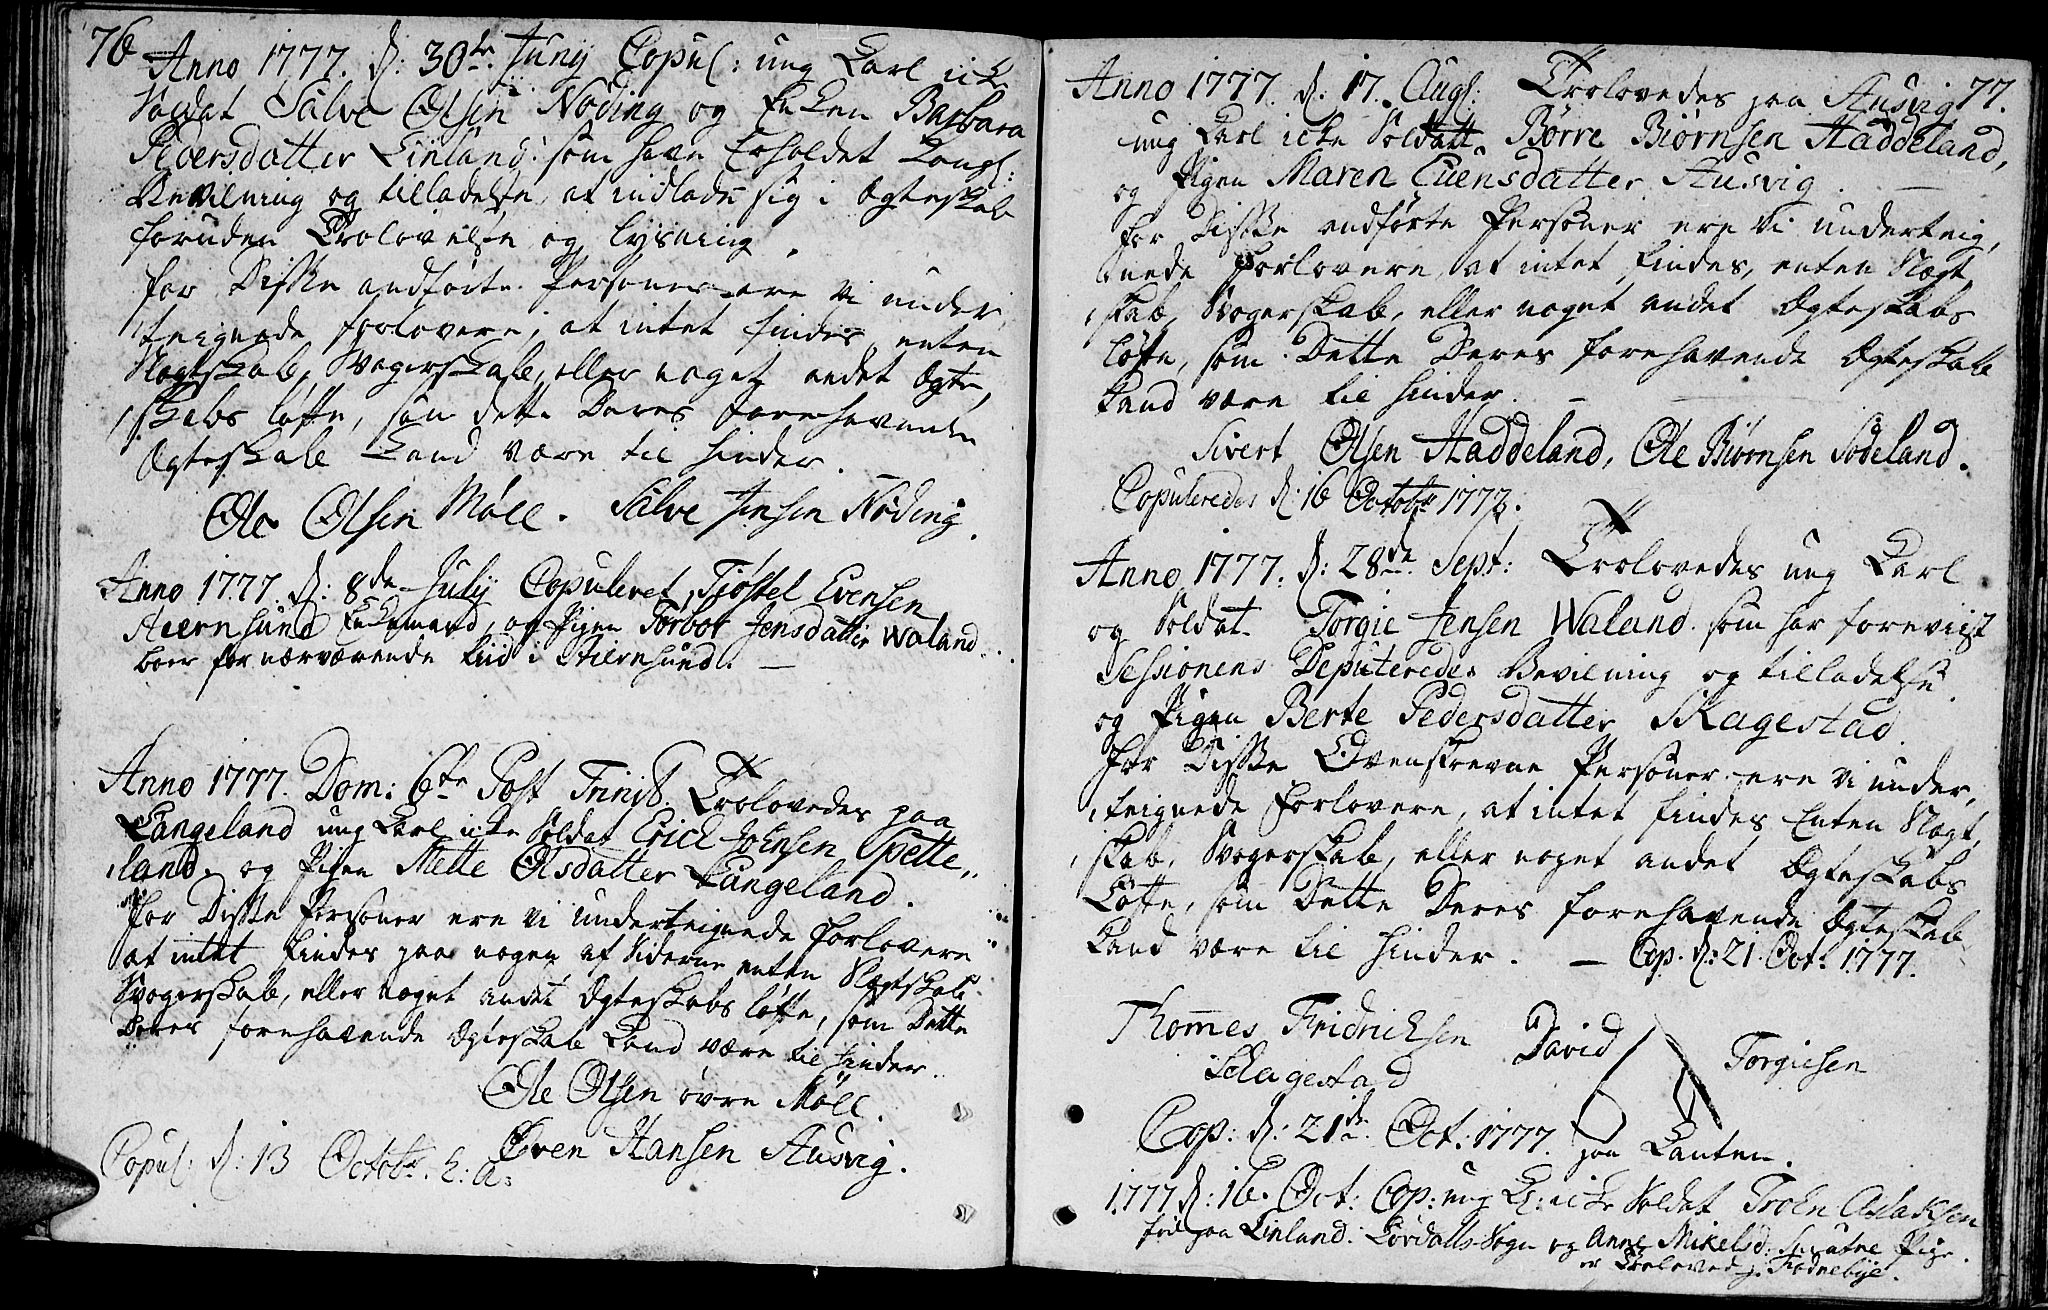 76
Anno 1777. d: 30te Junij Copul: ung Karl icke
Soldat Salve Olsen Nöding og Enken Barbara
Pedersdatter Linland: som have Erholdet Kongl:
Bevilning og tilladelse, at indlade sig i Ægteskab
foruden Trolovelse og lysning.
for Disse andførte Personer ere vi under,
teignede forlovere, at intet findes enten
Slegtskab, Svogerskab, eller noget andet Ægte,
skabs løfte, som dette Deres forehavende
Ægteskab kand være til hinder.
Ole Olsen Möll. Salve Jensen Nöding.
Anno 1777. d: 8de July Copuleret, Tiöstel Evensen
Stiernsund Enkemand, og Pigen Torbor Jensdatter Waland
boer for nærværende tiid i Stiernsund.
Anno 1777. Dom: 6te Post Trinit Trolovedes paa
Langeland ung Karl icke Soldat Erich Joensen Spette,,
land. og Pigen Mette Olsdatter Langeland.
for Disse Personer ere vi underteignede forlovere
at intet findes paa nogen af Siderne enten Slegtskab
Svogerskab, eller noget andet Ægteskabs løfte, som Dette
Deres forehavende Ægteskab kand være til hinder.
Ole Olsen øvre Möll.
Even Hansen Ausvig.
Copul: d: 13 Octobr. h: a:
77.
Anno 1777. d: 17. Aug: Trolovedes paa Ausvig
ung Karl icke Soldatt. Børre Biørnsen Haddeland,
og Pigen Maren Euensdatter Ausvig.
for Disse andførte Personer ere vi underteig,
nede forlovere at intet findes, enten Slegt,
skab, Svogerskab, eller noget andet Ægteskabs
løfte, som Dette Deres forehavende Ægteskab
kand være til hinder.
Sivert Olsen Haddeland, Ole Biørnsen Södeland.
Copuleredes d: 16 Octobr 1777.
Anno 1777. d: 28de Sept: Trolovedes ung Karl
og Soldat Torgie Jensen Waland som har foreviist
Sessionens Deputeredes Bevilning og tilladelse
og Pigen Berte Pedersdatter Skagestad.
for Disse Ovenskrevne Personer ere vi under,
teignede forlovere, at intet findes Enten Slegt,
skab, Svogerskab, eller noget andet Ægteskabs
Løfte, som Dette Deres forehavende Ægteskab
kand være til hinder. — Cop. d: 21. Oct: 1777.
Thommes Fridrichsen David Torgiesen
Skagestad
Cop: d: 21de Oct: 1777. paa Lauten.
1777 d: 16. Oct: Cop: ung K: icke Soldat Troen Aslaksen
föd paa Linland: Lövdalls Sogn og Anne Mikelsd: Pige.
er Trolovet i Fodnebÿe.